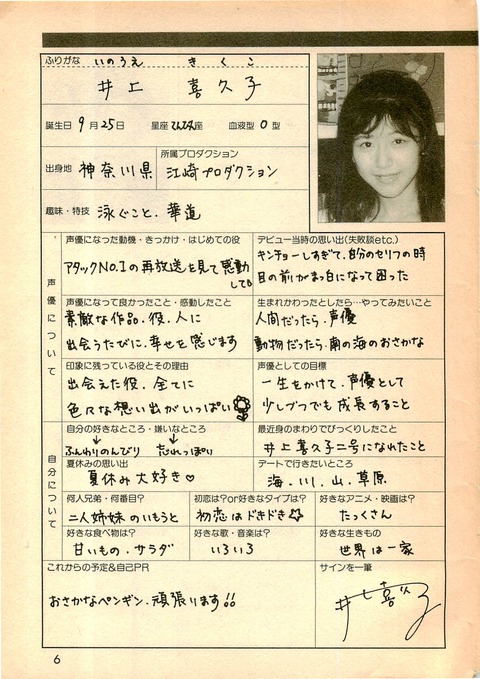 ふりがな いのうえ きくこ
井上 喜久子
誕生日 9月25日 星座 てんびん座 血液型 O型
出身地 神奈川県
所属プロダクション
江崎プロダクション
趣味・特技 泳ぐこと、華道
声優について
声優になった動機・きっかけ・はじめての役
アタックNo.1の再放送を見て感動
して。
デビュー当時の思い出(失敗談etc.)
キンチョーしすぎて、自分のセリフの時
目の前がまっ白になって困った
声優になって良かったこと・感動したこと
素敵な作品、役、人に
出会うたびに、幸せを感じます
生まれかわったとしたら…やってみたいこと
人間だったら、声優
動物だったら、南の海のおさかな
印象に残っている役とその理由
出会えた役、全てに
色々な想い出がいっぱい
声優としての目標
一生をかけて、声優として
少しづつでも成長すること
自分について
自分の好きなところ・嫌いなところ
ふんわりのんびり 忘れっぽい
最近身のまわりでびっくりしたこと
井上喜久子二号になれたこと
夏休みの思い出
夏休み大好き♡
デートで行きたいところ
海、川、山、草原
何人兄弟・何番目?
二人姉妹のいもうと
初恋は?or好きなタイプは?
初恋はドキドキ☆
好きなアニメ・映画は?
たっくさん
好きな食べ物は?
甘いもの、サラダ
好きな歌・音楽は?
いろいろ
好きな生きもの
世界は一家
これからの予定&自己PR
おさかなペンギン、頑張ります!!
サインを一筆
井上喜久子
6